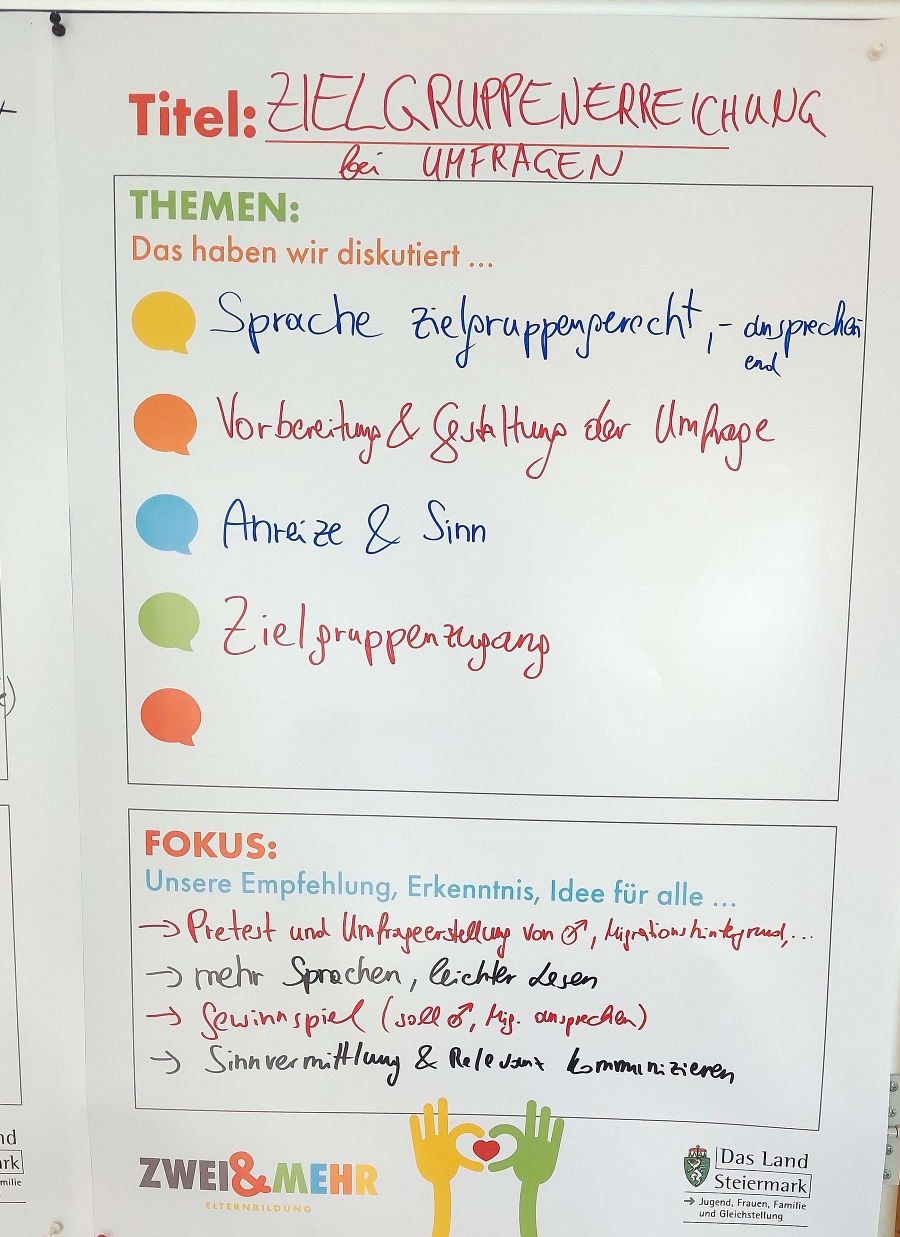 Titel: ZIELGRUPPENERREICHUNG
bei UMFRAGEN
THEMEN:
Das haben wir diskutiert ...
Sprache zielgruppengerecht, - ansprechen
end
Vorbereitung & Gestaltung der Umfrage
Anreize & Sinn
Zielgruppenzugang
FOKUS:
Unsere Empfehlung, Erkenntnis, Idee für alle ...
→ Pretest und Umfrageerstellung von ♂, Migrationshintergrund,...
→ mehr Sprachen, leichter Lesen
→ Gewinnspiel (soll ♂, Mig. ansprechen)
→ Sinnvermittlung & Relevanz kommunizieren
ZWEI&MEHR
ELTERNBILDUNG
Das Land
Steiermark
→ Jugend, Frauen, Familie
und Gleichstellung